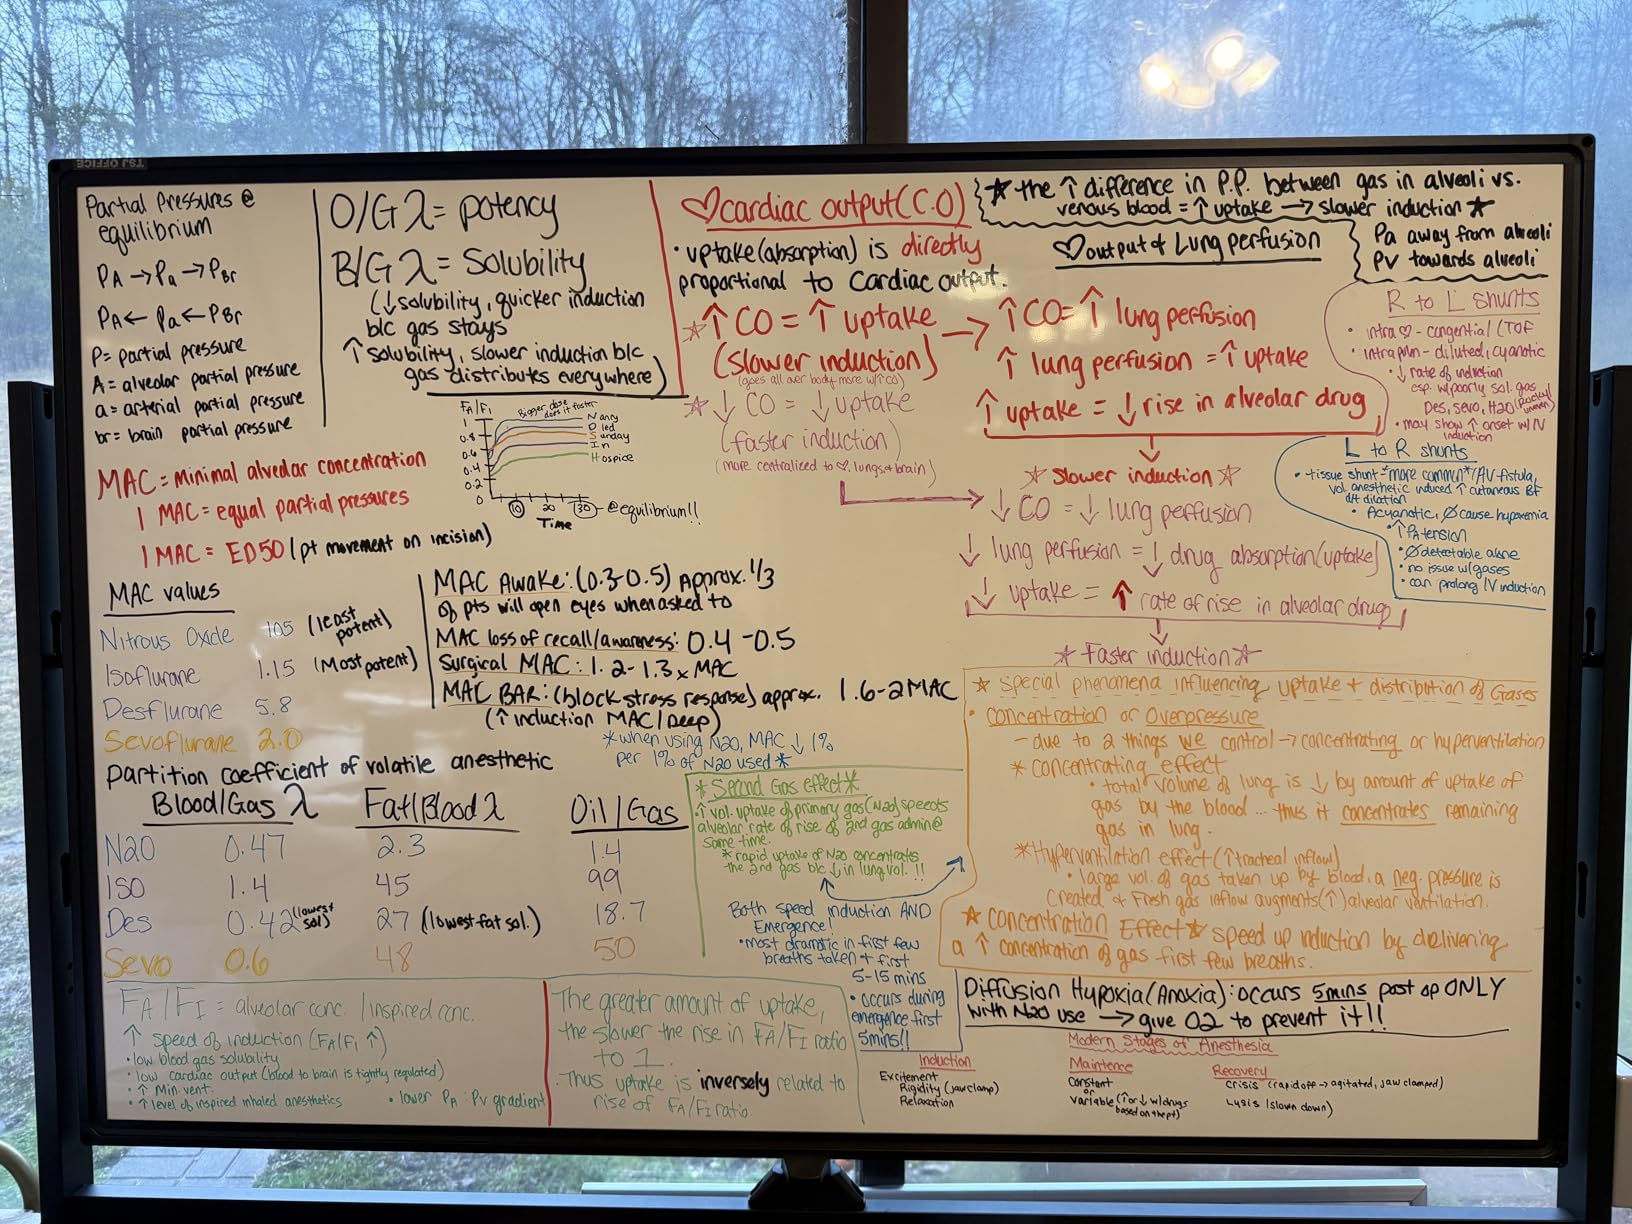 TSJ OFFICE
Partial Pressures @
equilibrium
PA → Pa → PBr
PA ← Pa ← PBr
P = partial pressure
A = alveolar partial pressure
a = arterial partial pressure
br = brain partial pressure
O/G λ = potency
B/G λ = Solubility
(↓ solubility, quicker induction
b/c gas stays
↑ solubility, slower induction b/c
gas distributes everywhere)
FA/FI
Bigger dose
does it faster
1
0.8
0.6
0.4
0.2
0
Nanny
Oled
Sunday
In
Hospice
10 20 30 @ equilibrium!!
Time
MAC = minimal alveolar concentration
1 MAC = equal partial pressures
1 MAC = ED50 (pt movement on incision)
MAC values
Nitrous Oxide 105 (least
potent)
Isoflurane 1.15 (Most potent)
Desflurane 5.8
Sevoflurane 2.0
MAC Awake: (0.3-0.5) Approx. 1/3
of pts will open eyes when asked to
MAC loss of recall/awareness: 0.4 - 0.5
Surgical MAC: 1.2-1.3 x MAC
MAC BAR: (block stress response) approx. 1.6-2 MAC
(↑ induction MAC/Deep)
*when using N2O, MAC ↓ 1%
per 1% of N2O used*
Partition coefficient of volatile anesthetic
Blood/Gas λ Fat/Blood λ Oil/Gas
N2O 0.47 2.3 1.4
ISO 1.4 45 99
Des 0.42 (lowest sol) 27 (lowest fat sol.) 18.7
Sevo 0.6 48 50
FA/FI = alveolar conc. / inspired conc.
↑ speed of induction (FA/FI ↑)
• low blood gas solubility
• low cardiac output (blood to brain is tightly regulated)
• ↑ Min vent.
• ↑ level of inspired inhaled anesthetics • lower PA:Pv gradient
The greater amount of uptake,
the slower the rise in FA/FI ratio
to 1.
Thus uptake is inversely related to
rise of FA/FI ratio.
♡ cardiac output (C.O)
• uptake (absorption) is directly
proportional to Cardiac output.
☆ ↑ CO = ↑ uptake →
(Slower induction)
(goes all over body more w/↑CO)
☆ ↓ CO = ↓ uptake
(faster induction)
(more centralized to ♡, lungs & brain)
☆ the ↑ difference in P.P. between gas in alveoli vs.
venous blood = ↑ uptake → slower induction ☆
Pa away from alveoli
Pv towards alveoli
♡ output & Lung perfusion
↑ CO = ↑ lung perfusion
↑ lung perfusion = ↑ uptake
↑ uptake = ↓ rise in alveolar drug
☆ Slower induction ☆
↓ CO = ↓ lung perfusion
↓ lung perfusion = ↓ drug absorption (uptake)
↓ uptake = ↑ rate of rise in alveolar drug
☆ Faster induction ☆
R to L shunts
• intra ♡ - congential (TOF
• intrapulm - diluted, cyanotic
• ↓ rate of induction
esp. w/ poorly sol. gas
Des, sevo, N2O
• may show ↑ onset w/ IV
induction
L to R shunts
• tissue shunt *more commun*/AV-fistula,
vol. anesthetic induced ↑ cutaneous BF
d/t dilation
• Acyanotic, Ø cause hypoxemia
• ↑ PA tension
• Ø detectable alone
• no issue w/ gases
• can prolong IV induction
☆ Special phenomena influencing uptake + distribution of Gases
• Concentration or Overpressure
- due to 2 things we control → concentrating or hyperventilation
* concentrating effect
• total volume of lung is ↓ by amount of uptake of
gas by the blood... thus it concentrates remaining
gas in lung.
* Hyperventilation effect (↑ tracheal inflow)
• large vol. of gas taken up by blood, a neg. pressure is
created & Fresh gas inflow augments (↑) alveolar ventilation.
☆ Concentration Effect ☆ speed up induction by delivering
a ↑ concentration of gas first few breaths.
* Second Gas effect *
↑ vol. uptake of primary gas (N2O) speeds
alveolar rate of rise of 2nd gas admin @
same time.
* rapid uptake of N2O concentrates
the 2nd gas b/c ↓ in lung vol. !!
Both speed induction AND
Emergence!
• most dramatic in first few
breaths taken & first
5-15 mins
• occurs during
emergence first
5 mins!!
Diffusion Hypoxia (Anoxia): occurs 5mins post op ONLY
with N2O use → give O2 to prevent it!!
Modern Stages of Anesthesia
Induction
Excitement
Rigidity (jaw clamp)
Relaxation
Maintence
Constant
or
Variable (↑ or ↓ w/ drugs
based on the pt)
Recovery
Crisis (rapid off → agitated, jaw clamped)
Lysis (slown down)